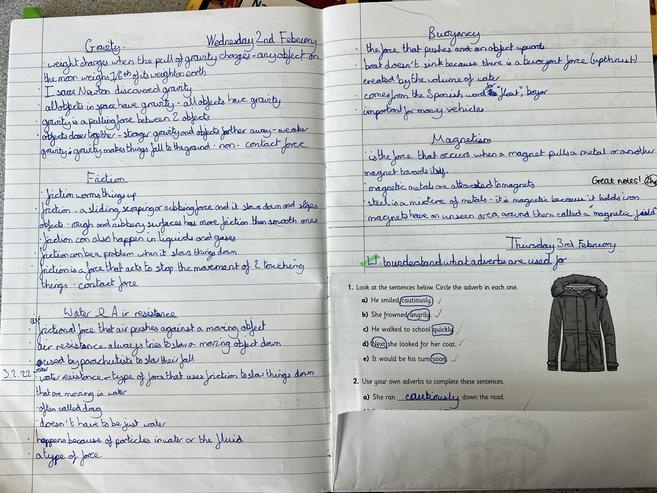 Gravity. Wednesday 2nd February
· weight changes when the pull of gravity changes - any object on
the moon weighs 1/6th of its weight on earth
· I saac Newton discovered gravity
· all objects in space have gravity - all objects have gravity
· gravity is a pulling force between 2 objects
objects closer together - stronger gravity and objects further away - weaker
gravity · gravity makes things fall to the ground · non - contact force
Friction
· friction warms things up
· friction - a sliding scraping or rubbing force and it slows down and stops
objects · rough and rubbery surfaces has more friction than smooth ones
· friction can also happen in liquids and gases
· friction can be a problem when it slows things down
· friction is a force that acts to stop the movement of 2 touching
things · contact force
Water & Air resistance
frictional force that air pushes against a moving object
air resistance always tries to slow a moving object down
used by parachutists to slow their fall
3.2.22 water resistance - type of force that uses friction to slow things down
that are moving in water
· often called drag
· doesn't have to be just water
happens because of particles in water or the fluid
· a type of force
Buoyancy
· the force that pushes and an object upwards
· boat doesn't sink because there is a buoyant force (upthrust)
created by the volume of water
· comes from the Spanish word "float", boyar
· important for many vehicles
Magnetism
· is the force that occurs when a magnet pulls a metal or another
magnet towards itself.
· magnetic metals are attracted to magnets
Great notes!
· steel is a mixture of metals · it is magnetic because it holds iron
· magnets have an unseen area around them called a "magnetic field"
Thursday 3rd February
L.I. to understand what adverbs are used for
1. Look at the sentences below. Circle the adverb in each one.
a) He smiled cautiously.
b) She frowned angrily.
c) He walked to school quickly.
d) Next, she looked for her coat.
e) It would be his turn soon.
2. Use your own adverbs to complete these sentences.
a) She ran cautiously down the road.